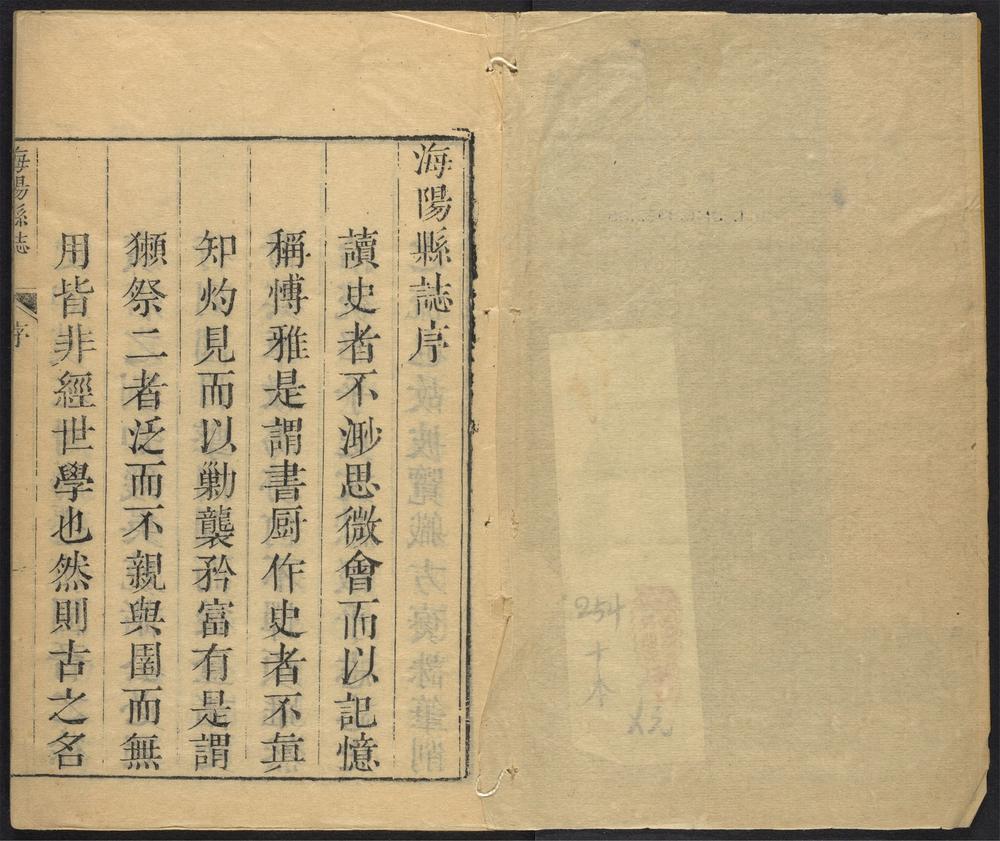 254
十本
海陽縣誌序
讀史者不渺思微會而以記憶
稱愽雅是謂書厨作史者不真
知灼見而以勦襲矜富有是謂
獺祭二者泛而不親與圄而無
用皆非經世學也然則古之名
海陽縣誌
序